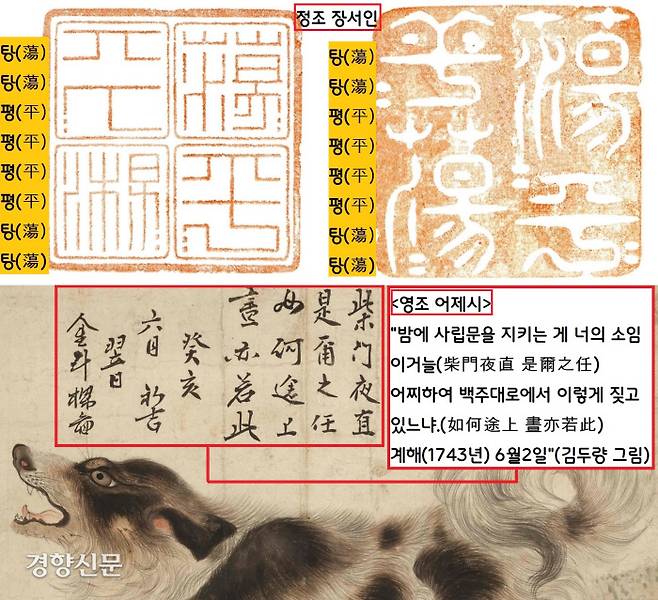 정조 장서인
탕(蕩)
탕(蕩)
평(平)
평(平)
평(平)
평(平)
탕(蕩)
탕(蕩)
蕩平
平蕩
탕(蕩)
탕(蕩)
평(平)
평(平)
평(平)
평(平)
탕(蕩)
탕(蕩)
蕩平
平蕩
柴門夜直
是爾之任
如何途上
晝亦若此
癸亥
六月初吉
翌日
金斗樑圖
<영조 어제시>
"밤에 사립문을 지키는 게 너의 소임
이거늘(柴門夜直 是爾之任)
어찌하여 백주대로에서 이렇게 짖고
있느냐.(如何途上 晝亦若此)
계해(1743년) 6월2일"(김두량 그림)
경향신문